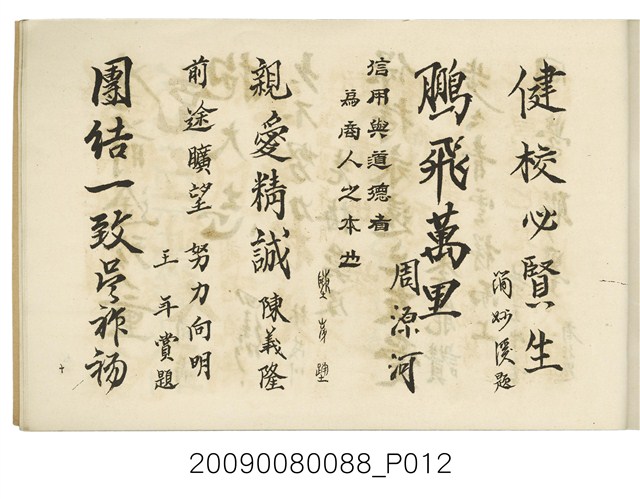 健校必賢生
妙溪題
鵬飛萬里
周源河
信用與道德者
為商人之本也
親愛精誠 陳義隆
前途曠望 努力向明
王年賞題
團結一致 吳祚
十
20090080088_P012